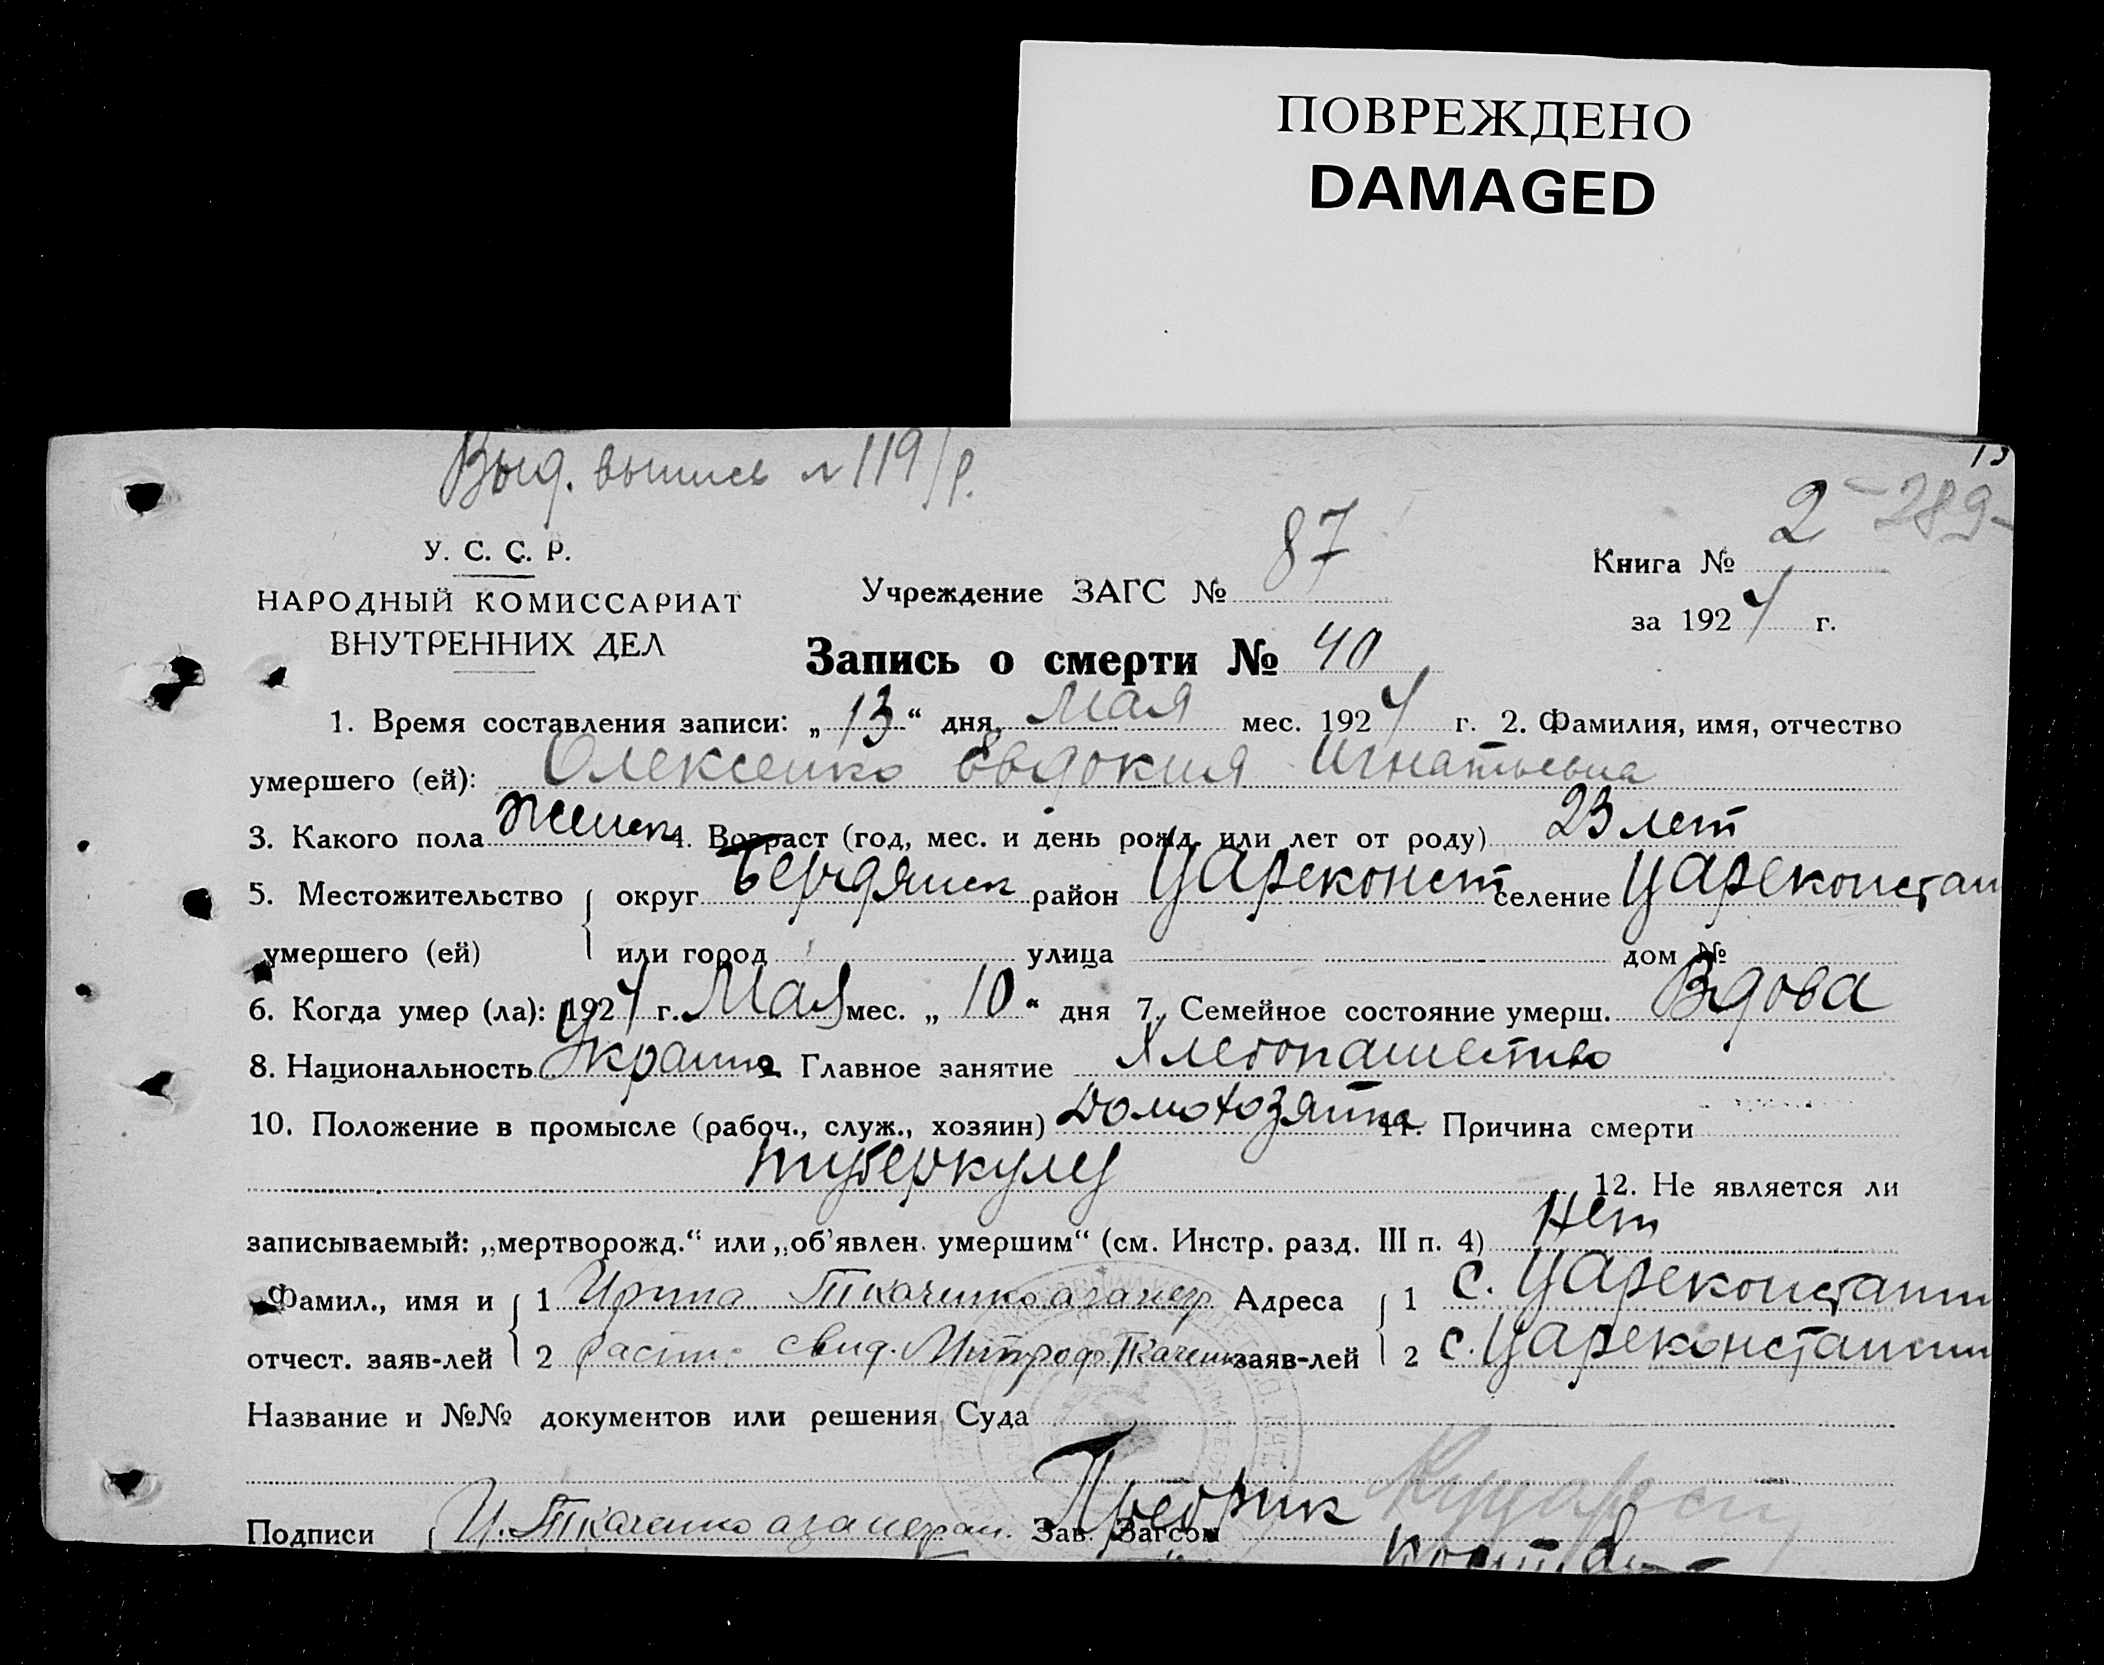 ПОВРЕЖДЕНО
DAMAGED
13
Выд. выпись № 119/р.
2 - 289 -
У. С. С. Р.
НАРОДНЫЙ КОМИССАРИАТ
ВНУТРЕННИХ ДЕЛ
Учреждение ЗАГС № 87
Книга № 2
за 1924 г.
Запись о смерти № 40
1. Время составления записи: „13“ дня Мая мес. 1924 г. 2. Фамилия, имя, отчество
умершего (ей): Олексенко Евдокия Игнатьевна
3. Какого пола женск 4. Возраст (год, мес. и день рожд. или лет от роду) 23 лет
5. Местожительство { округ Бердянск район Цареконст селение Цареконстан
умершего (ей) или город улица дом №
6. Когда умер (ла): 1924 г. Мая мес. „10“ дня 7. Семейное состояние умерш. Вдова
8. Национальность Украин 9. Главное занятие Хлебопашество
10. Положение в промысле (рабоч., служ., хозяин) домохозяйка 11. Причина смерти
туберкулез
12. Не является ли
записываемый: „мертворожд.“ или „об'явлен. умершим“ (см. Инстр. разд. III п. 4) Нет
Фамил., имя и { 1 Ирина Ткаченко Адреса { 1 с. Цареконстантин
отчест. заяв-лей 2 свид. Митроф. Ткаченко заяв-лей 2 с. Цареконстантин
Название и №№ документов или решения Суда
Подписи { И. Ткаченко Зав. Загсом